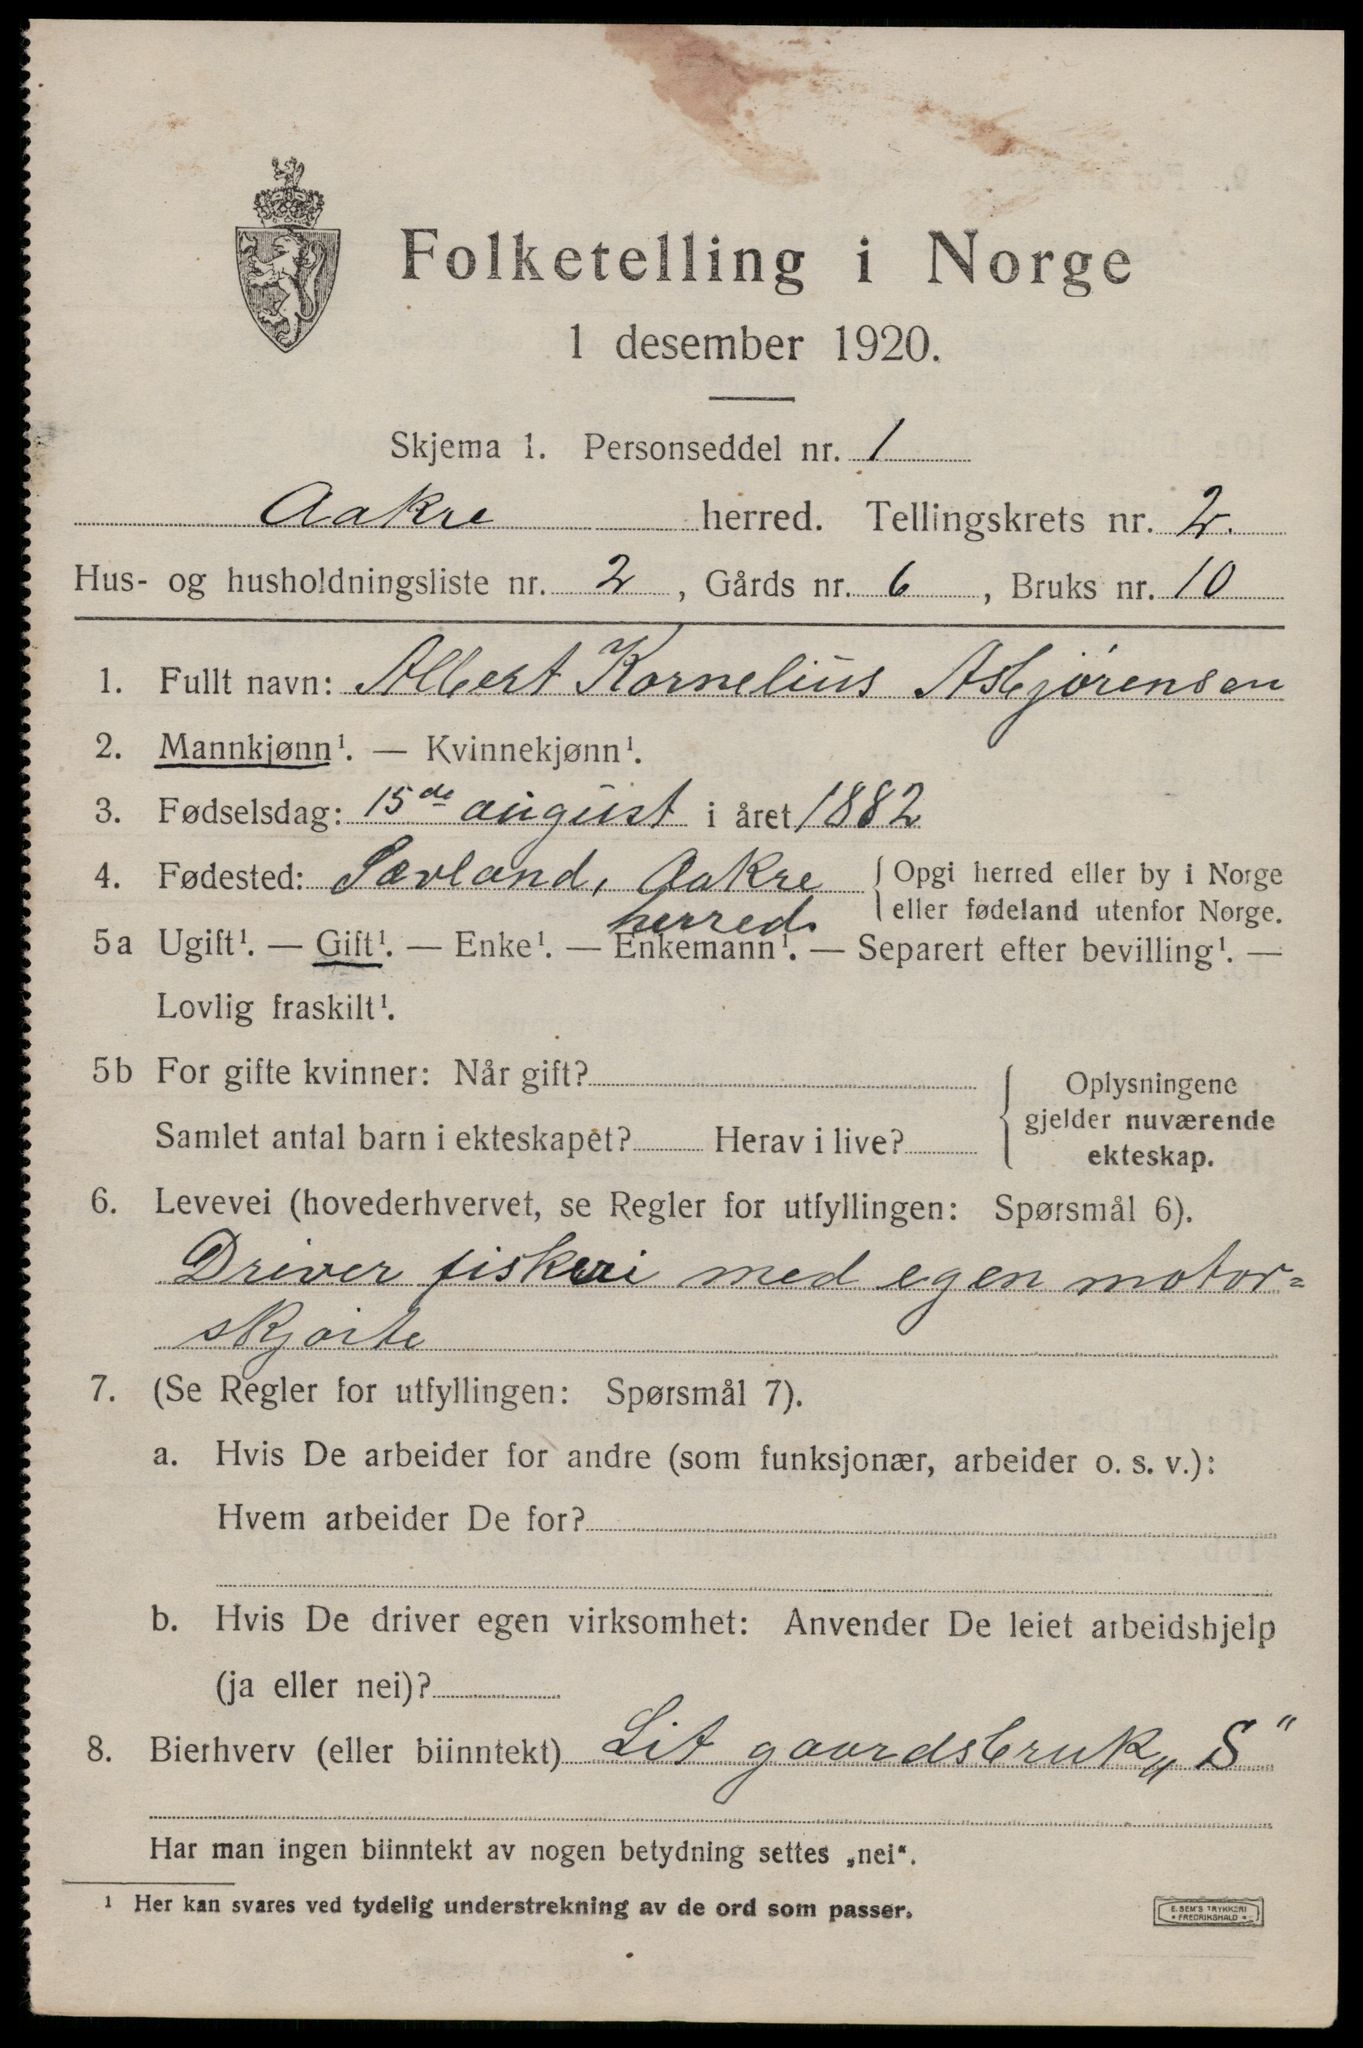 Folketelling i Norge
1 desember 1920.
Skjema 1. Personseddel nr. 1
Aakre herred. Tellingskrets nr. 2.
Hus- og husholdningsliste nr. 2, Gårds nr. 6, Bruks nr. 10
1. Fullt navn: Albert Kornelius Asbjørensen
2. Mannkjønn¹. — Kvinnekjønn¹.
3. Fødselsdag: 15de august i året 1882
4. Fødested: Sævland, Aakre herred. { Opgi herred eller by i Norge
eller fødeland utenfor Norge.
5a Ugift¹. — Gift¹. — Enke¹. — Enkemann¹. — Separert efter bevilling¹. —
Lovlig fraskilt¹.
5b For gifte kvinner: Når gift? { Oplysningene
gjelder nuværende
Samlet antal barn i ekteskapet? Herav i live? ekteskap.
6. Levevei (hovederhvervet, se Regler for utfyllingen: Spørsmål 6).
Driver fiskeri med egen motor=
skjøite
7. (Se Regler for utfyllingen: Spørsmål 7).
a. Hvis De arbeider for andre (som funksjonær, arbeider o. s. v.):
Hvem arbeider De for?
b. Hvis De driver egen virksomhet: Anvender De leiet arbeidshjelp
(ja eller nei)?
8. Bierhverv (eller biinntekt) Lit gaardsbruk „S“
Har man ingen biinntekt av nogen betydning settes „nei“.
¹ Her kan svares ved tydelig understrekning av de ord som passer.
E. SEM'S TRYKKERI
FREDRIKSHALD